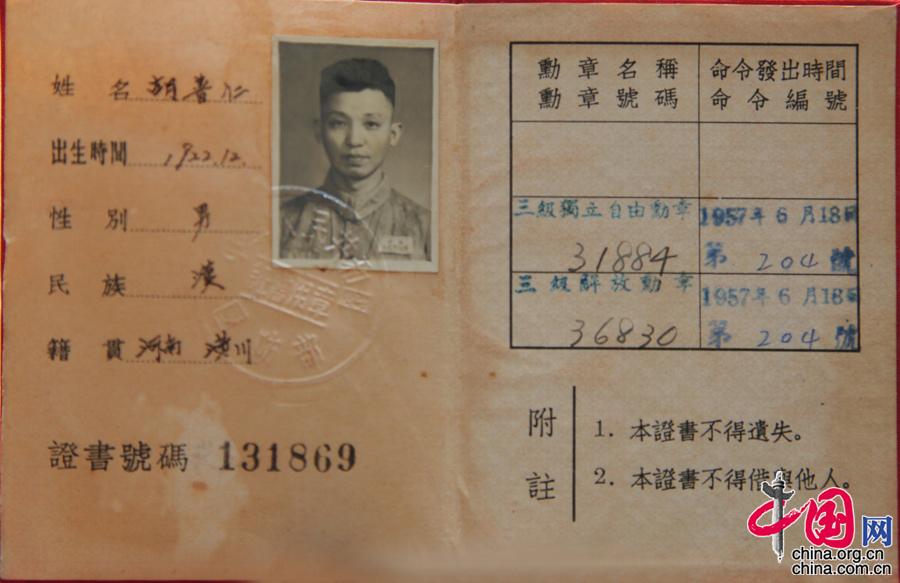 姓名 胡普仁
出生時間 1922.12.
性別 男
民族 漢
籍貫 河南 潢川
證書號碼 131869
勳章名稱
勳章號碼
命令發出時間
命令編號
三級獨立自由勳章
31884
1957年6月18日
第 204 號
三級解放勳章
36830
1957年6月18日
第 204 號
附註
1. 本證書不得遺失。
2. 本證書不得借與他人。
中国网
china.org.cn
china.com.cn